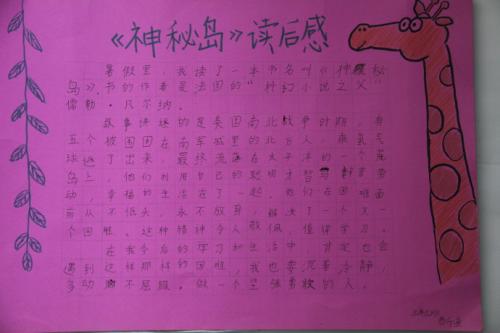 《神秘岛》读后感
暑假里，我读了一本书名叫《神秘
岛》，书的作者是法国的“科幻小说之父”
儒勒·凡尔纳。
故事讲述的是美国南北战争时期，有
五个被困在南军城里的北方人，乘氢气
球逃了出来，最终流落在太平洋的一个荒
岛上，他们利用自己的聪明才智 劳
动，幸福的生活在了一起。他们在困难面
前从不低头，永不放弃，解决了一个又一
个困难。这种精神令人敬佩，值得学习。
在我今后的学习和生活中，肯定也会
遇到这样那样的困难，我也要沉着冷静，
多动 不屈服。做一个坚强勇敢的人。